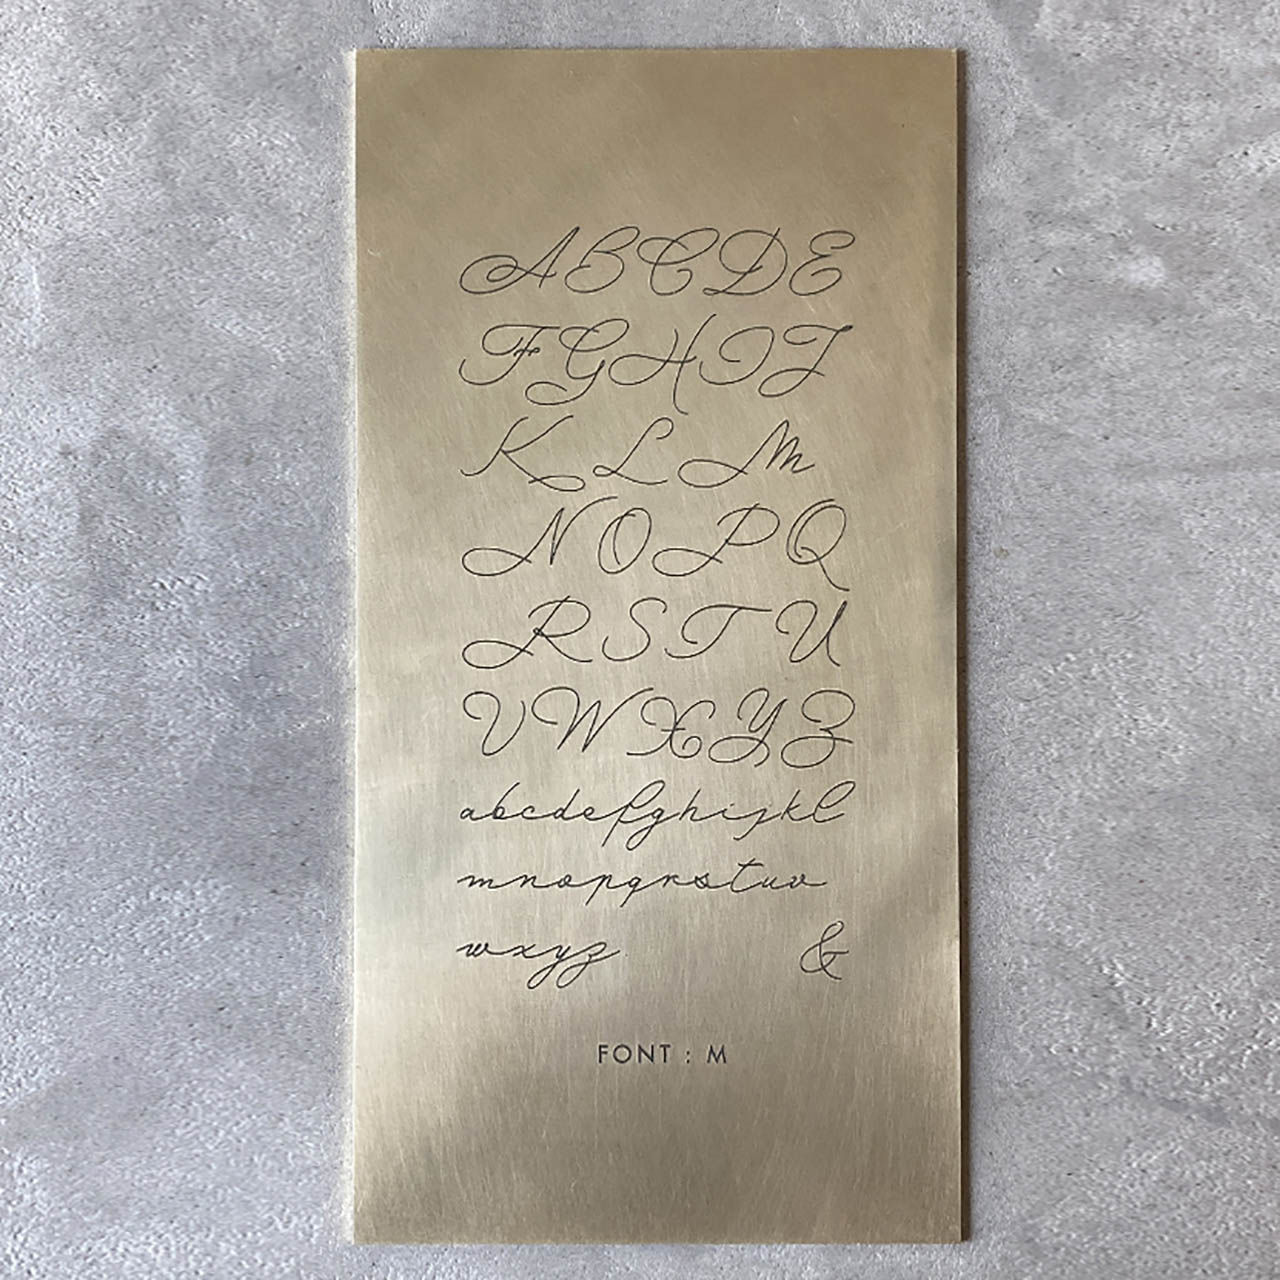 ABCDE
FGHIJ
KLM
NOPQ
RSTU
VWXYZ
abcdefghijkl
mnopqrstuv
wxyz &
FONT : M